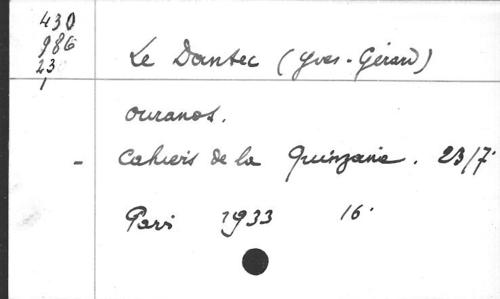 430
986
23
1
Le Dantec (Yves-Gérard)
Ouranos.
- Cahiers de la Quinzaine. 23/7.
Paris 1933 16.